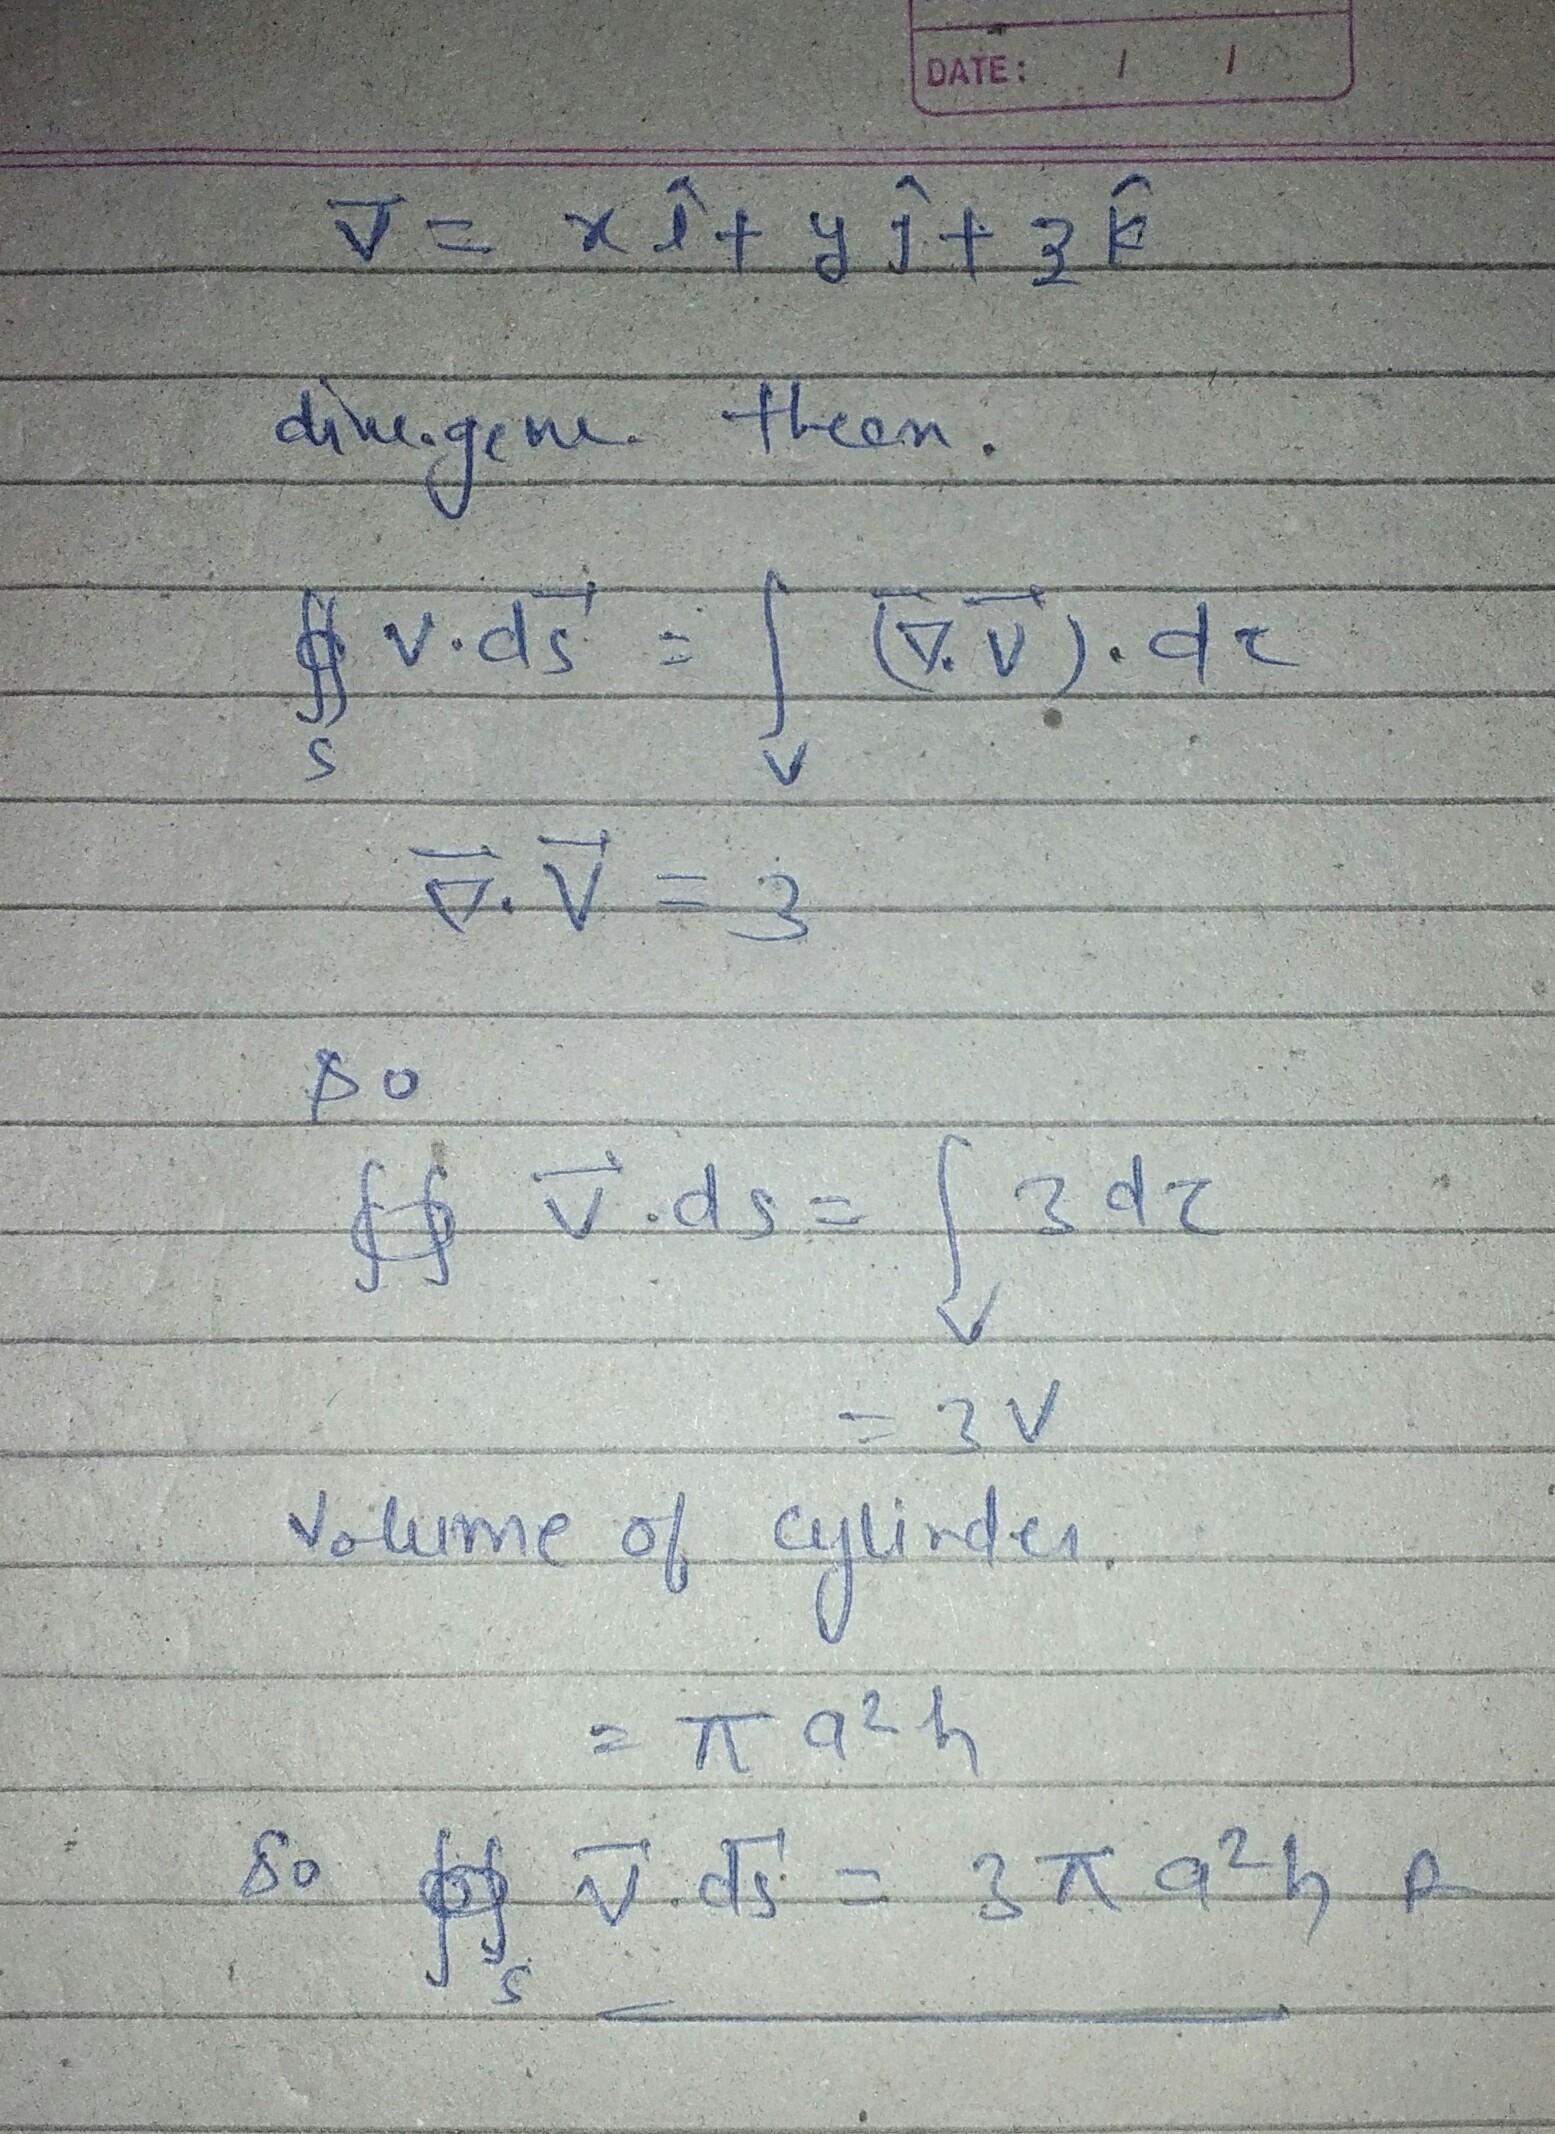 DATE: / /
V̅ = x î + y ĵ + z k̂
divergene theon.
∯ V.ds⃗ = ∫ (∇⃗.V⃗).dτ
S V
∇⃗.V⃗ = 3
so
∯ V⃗.ds = ∫ 3 dτ
V
= 3V
Volume of cylinder.
= π a²h
So ∯ V⃗.ds⃗ = 3 π a²h
S